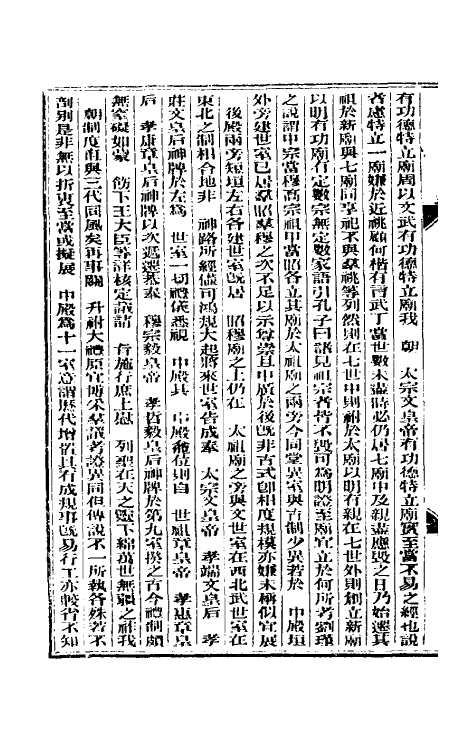 有功德特立廟周以文武有功德特立廟我 朝 太宗文皇帝有功德特立廟實至當不易之經也說
者慮特立一廟嫌於近祧顧何楷有言武丁當世數未盡時必仍居七廟中及親盡應毀之日乃始遷其
祖於新廟與七廟同享祀不與羣祧等列然則在七世中則祔於太廟以明有親在七世外則創立新廟
以明有功廟有定數宗無定數家語引孔子曰諸見祖宗者皆不毀可為明證至廟宜立於何所者劉瑾
之說謂中宗當穆高宗祖甲當昭各立其廟於太祖廟之兩旁今同堂異室與古制少異若於 中殿垣
外旁建世室已居羣昭羣穆之次不足以示尊崇且中廣於後既非古式卽相度規模亦嫌未稱似宜展
後殿兩旁短垣左右各建世室既居 昭穆廟之上仍在 太祖廟之旁與文世室在西北武世室在
東北之制相合地非 神路所經儘可鴻規大起將來世室皆成奉 太宗文皇帝 孝端文皇后 孝
莊文皇后神牌於左為 世室一切禮儀悉視 中殿其 中殿龕位則自 世祖章皇帝 孝惠章皇
后 孝康章皇后神牌以次遞遷恭奉 穆宗毅皇帝 孝哲毅皇后神牌於第九室揆之古今禮制頗
無窒礙如蒙 飭下王大臣等詳核定議請 旨施行庶上慰 列聖在天之靈下綿萬世無疆之祚我
朝制度直與三代同風矣再事關 升祔大禮原宜博采羣議考證異同但傳說不一所執各殊若不
剖別是非無以折衷至當或擬展 中殿為十一室意謂歷代增拓具有成規事既易行工亦較省不知